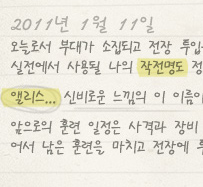 2011년 1월 11일
오늘로서 부대가 소집되고 전장 투입
실전에서 사용될 나의 작전명도 정
앨리스... 신비로운 느낌의 이 이름이
앞으로의 훈련 일정은 사격과 장비
어서 남은 훈련을 마치고 전장에 투